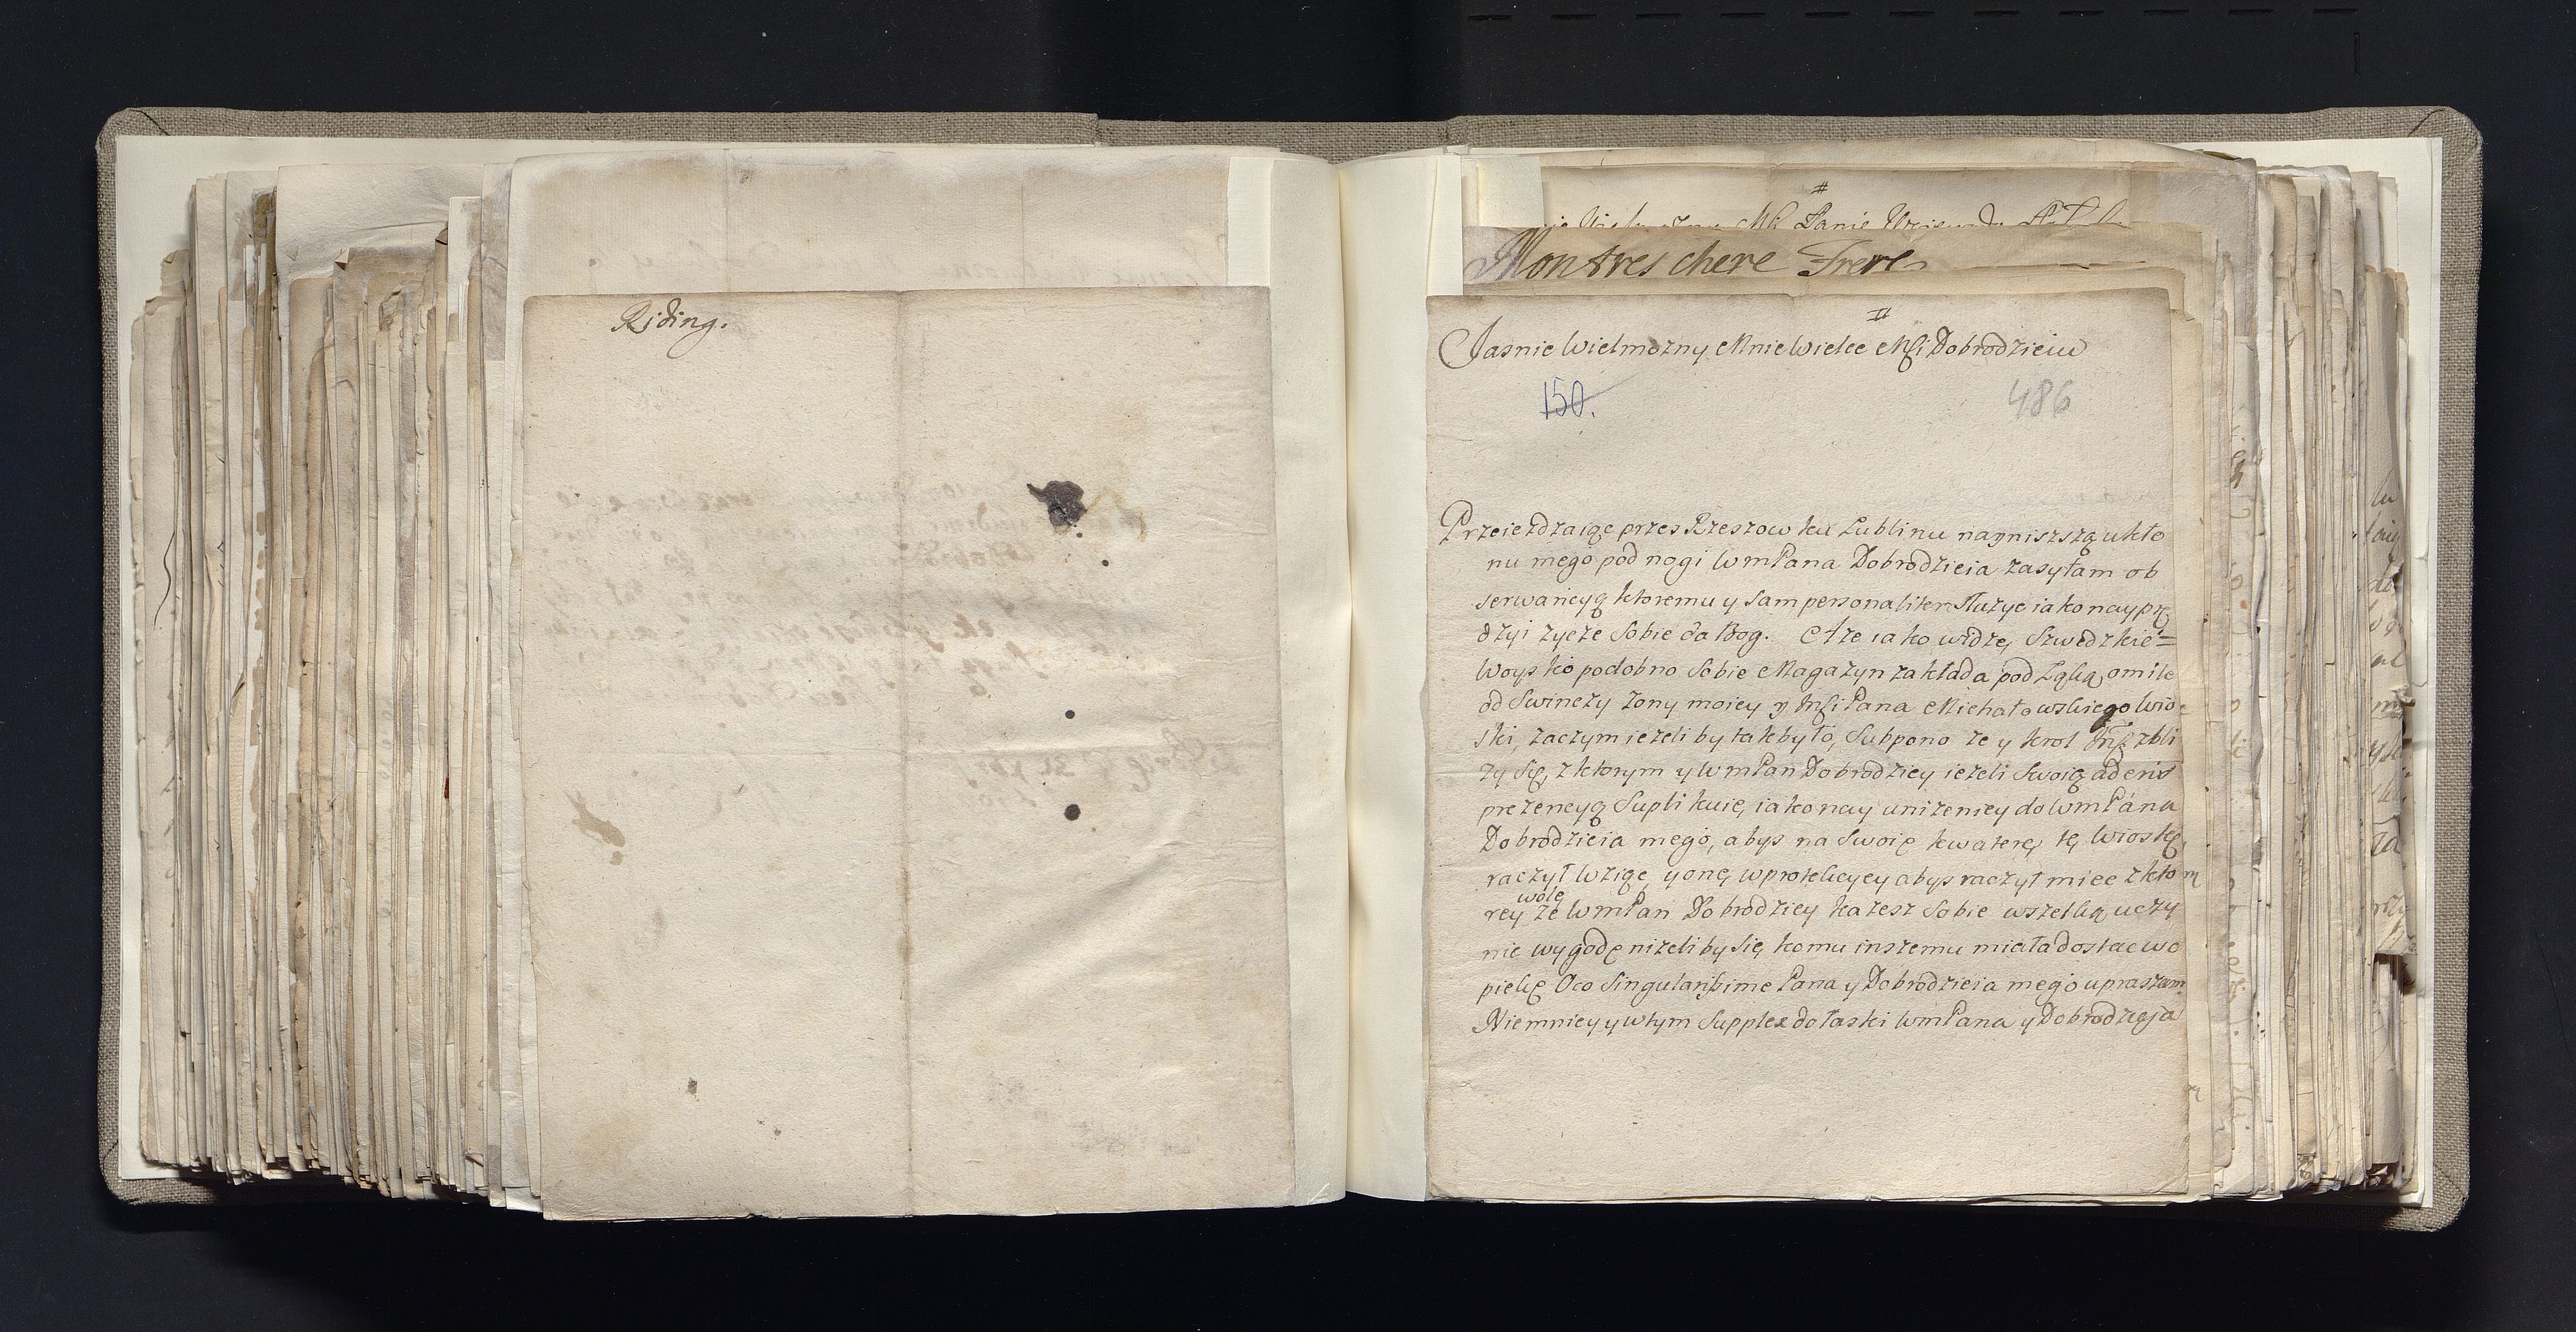 Riding.
#
Mh Panie
Montres chere Frere
#
Jasnie Wielmozny Mnie Wielce Msći Dobrodzieiu
150.
486
Przeiezdzaiąc przes Rzeszow ku Lublinu nayniszszą ukło
nu mego pod nogi WmPana Dobrodzieia zasyłam ob
serwancyą ktoremu y sam personaliter służyc iako nayprę
dzyi zycze sobie da Bog. A ze iako widzę, Szwedzkie=
Woysko podobno sobie Magazyn zakłada pod Łąką omile
od Swinczy zony moiey y Pana Michałowskiego Wio
ski, zaczym iezeli by tak było, Supono ze y krol zbli
zy się, z ktorym y WmPan Dobrodziey iezeli swoią aderis
prezencyą Suplikuię, iako nay unizeniey do WmPana
Dobrodzieia mego, abys na Swoię kwaterę tę Wioskę,
raczył wziąc, y onę w protekcyey abys raczył miec z kto
wolę
rey ze WmPan Dobrodziey kazesz Sobie wszelką uczy
nic wygodę nizeli by się komu inszemu miała dostac w o
piekę Oco Singularissime Pana y Dobrodzieia mego upraszam
Niemniey y wtym Supplex do łaski WmPana y Dobrodzieja